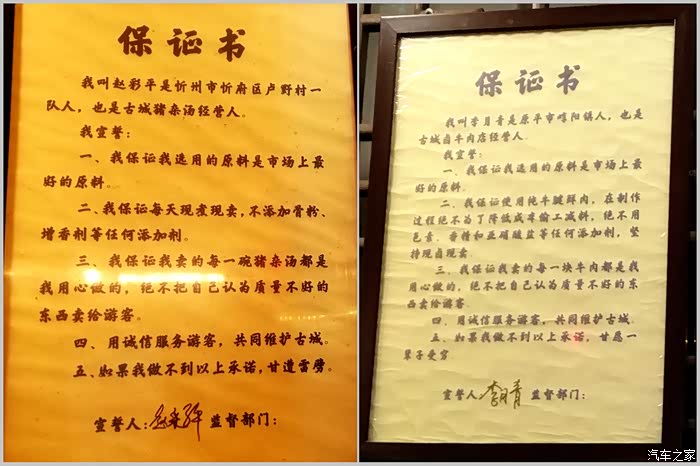 保证书
我叫赵彩平是忻州市忻府区卢野村一
队人，也是古城猪杂汤经营人。
我宣誓：
一、我保证我选用的原料是市场上最
好的原料。
二、我保证每天现煮现卖，不添加骨粉、
增香剂等任何添加剂。
三、我保证我卖的每一碗猪杂汤都是
我用心做的，绝不把自己认为质量不好的
东西卖给游客。
四、用诚信服务游客，共同维护古城。
五、如果我做不到以上承诺，甘遭雷劈。
宣誓人：赵彩平 监督部门：
保证书
我叫李月青是原平市崞阳镇人，也是
古城卤牛肉店经营人。
我宣誓：
一、我保证我选用的原料是市场上最
好的原料。
二、我保证使用纯牛腱鲜肉，在制作
过程绝不为了降低成本偷工减料，绝不用
色素、香精和亚硝酸盐等任何添加剂，坚
持现卤现卖。
三、我保证我卖的每一块牛肉都是我
用心做的，绝不把自己认为质量不好的东
西卖给游客。
四、用诚信服务游客，共同维护古城。
五、如果我做不到以上承诺，甘愿一
辈子受穷。
宣誓人：李月青 监督部门：
汽车之家